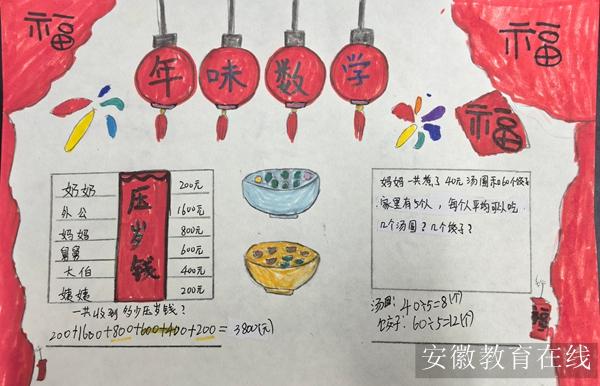 福
年味数学
福
福
奶奶 200元
外公 1600元
妈妈 800元
舅舅 600元
大伯 400元
姨姨 200元
压岁钱
一共收到多少压岁钱?
200+1600+800+600+400+200=3800(元)
妈妈一共煮了40元汤圆和60个饺子
家里有5个人,每个人平均可以吃
几个汤圆?几个饺子?
汤圆:40÷5=8(个)
饺子:60÷5=12(个)
福
安徽教育在线